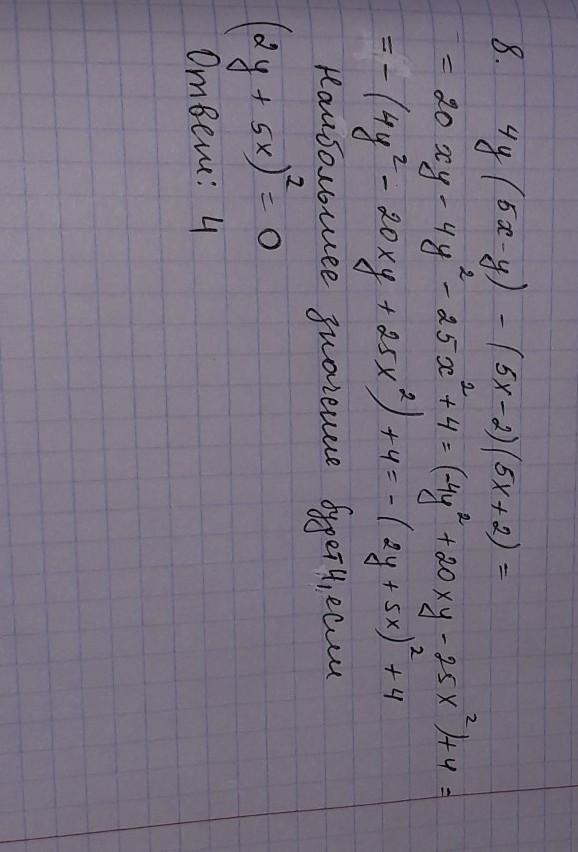 8. 4y(5x-y) - (5x-2)(5x+2) =
= 20xy - 4y² - 25x² + 4 = (-4y² + 20xy - 25x²) + 4 =
= -(4y² - 20xy + 25x²) + 4 = -(2y + 5x)² + 4
Наибольшее значение будет 4, если
(2y + 5x)² = 0
Ответ: 4